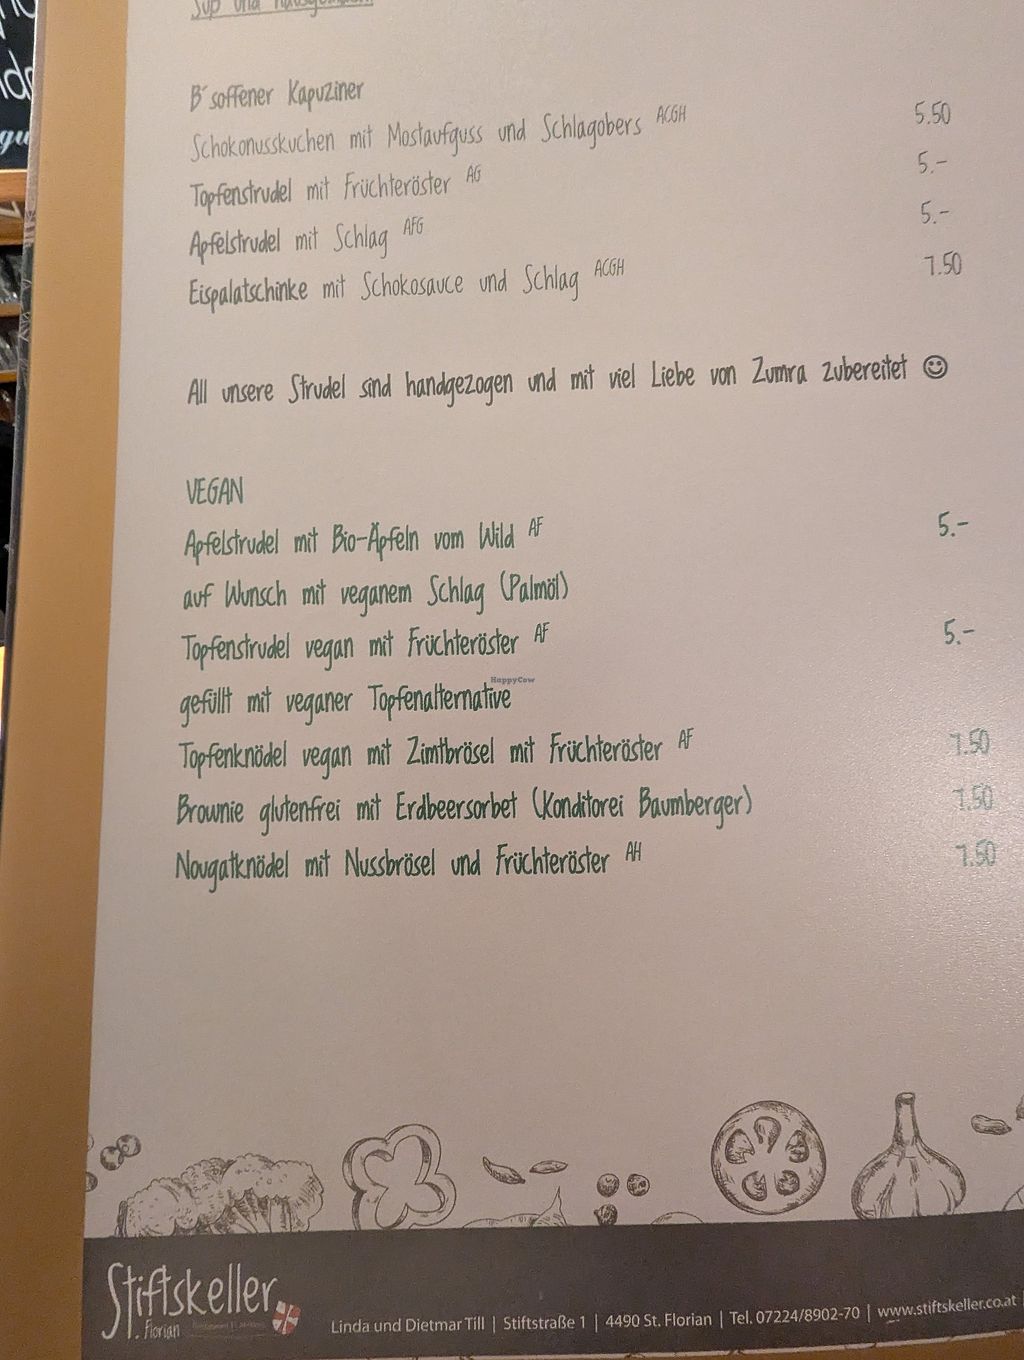 Süß und hausgemacht
B´soffener Kapuziner
Schokonusskuchen mit Mostaufguss und Schlagobers ACGH 5.50
Topfenstrudel mit Früchteröster AG 5.-
Apfelstrudel mit Schlag AFG 5.-
Eispalatschinke mit Schokosauce und Schlag ACGH 7.50
All unsere Strudel sind handgezogen und mit viel Liebe von Zumra zubereitet ☺
VEGAN
Apfelstrudel mit Bio-Äpfeln vom Wild AF 5.-
auf Wunsch mit veganem Schlag (Palmöl)
Topfenstrudel vegan mit Früchteröster AF 5.-
gefüllt mit veganer Topfenalternative
HappyCow
Topfenknödel vegan mit Zimtbrösel mit Früchteröster AF 7.50
Brownie glutenfrei mit Erdbeersorbet (Konditorei Baumberger) 7.50
Nougatknödel mit Nussbrösel und Früchteröster AH 7.50
Stiftskeller
St. Florian
Linda und Dietmar Till | Stiftstraße 1 | 4490 St. Florian | Tel. 07224/8902-70 | www.stiftskeller.co.at